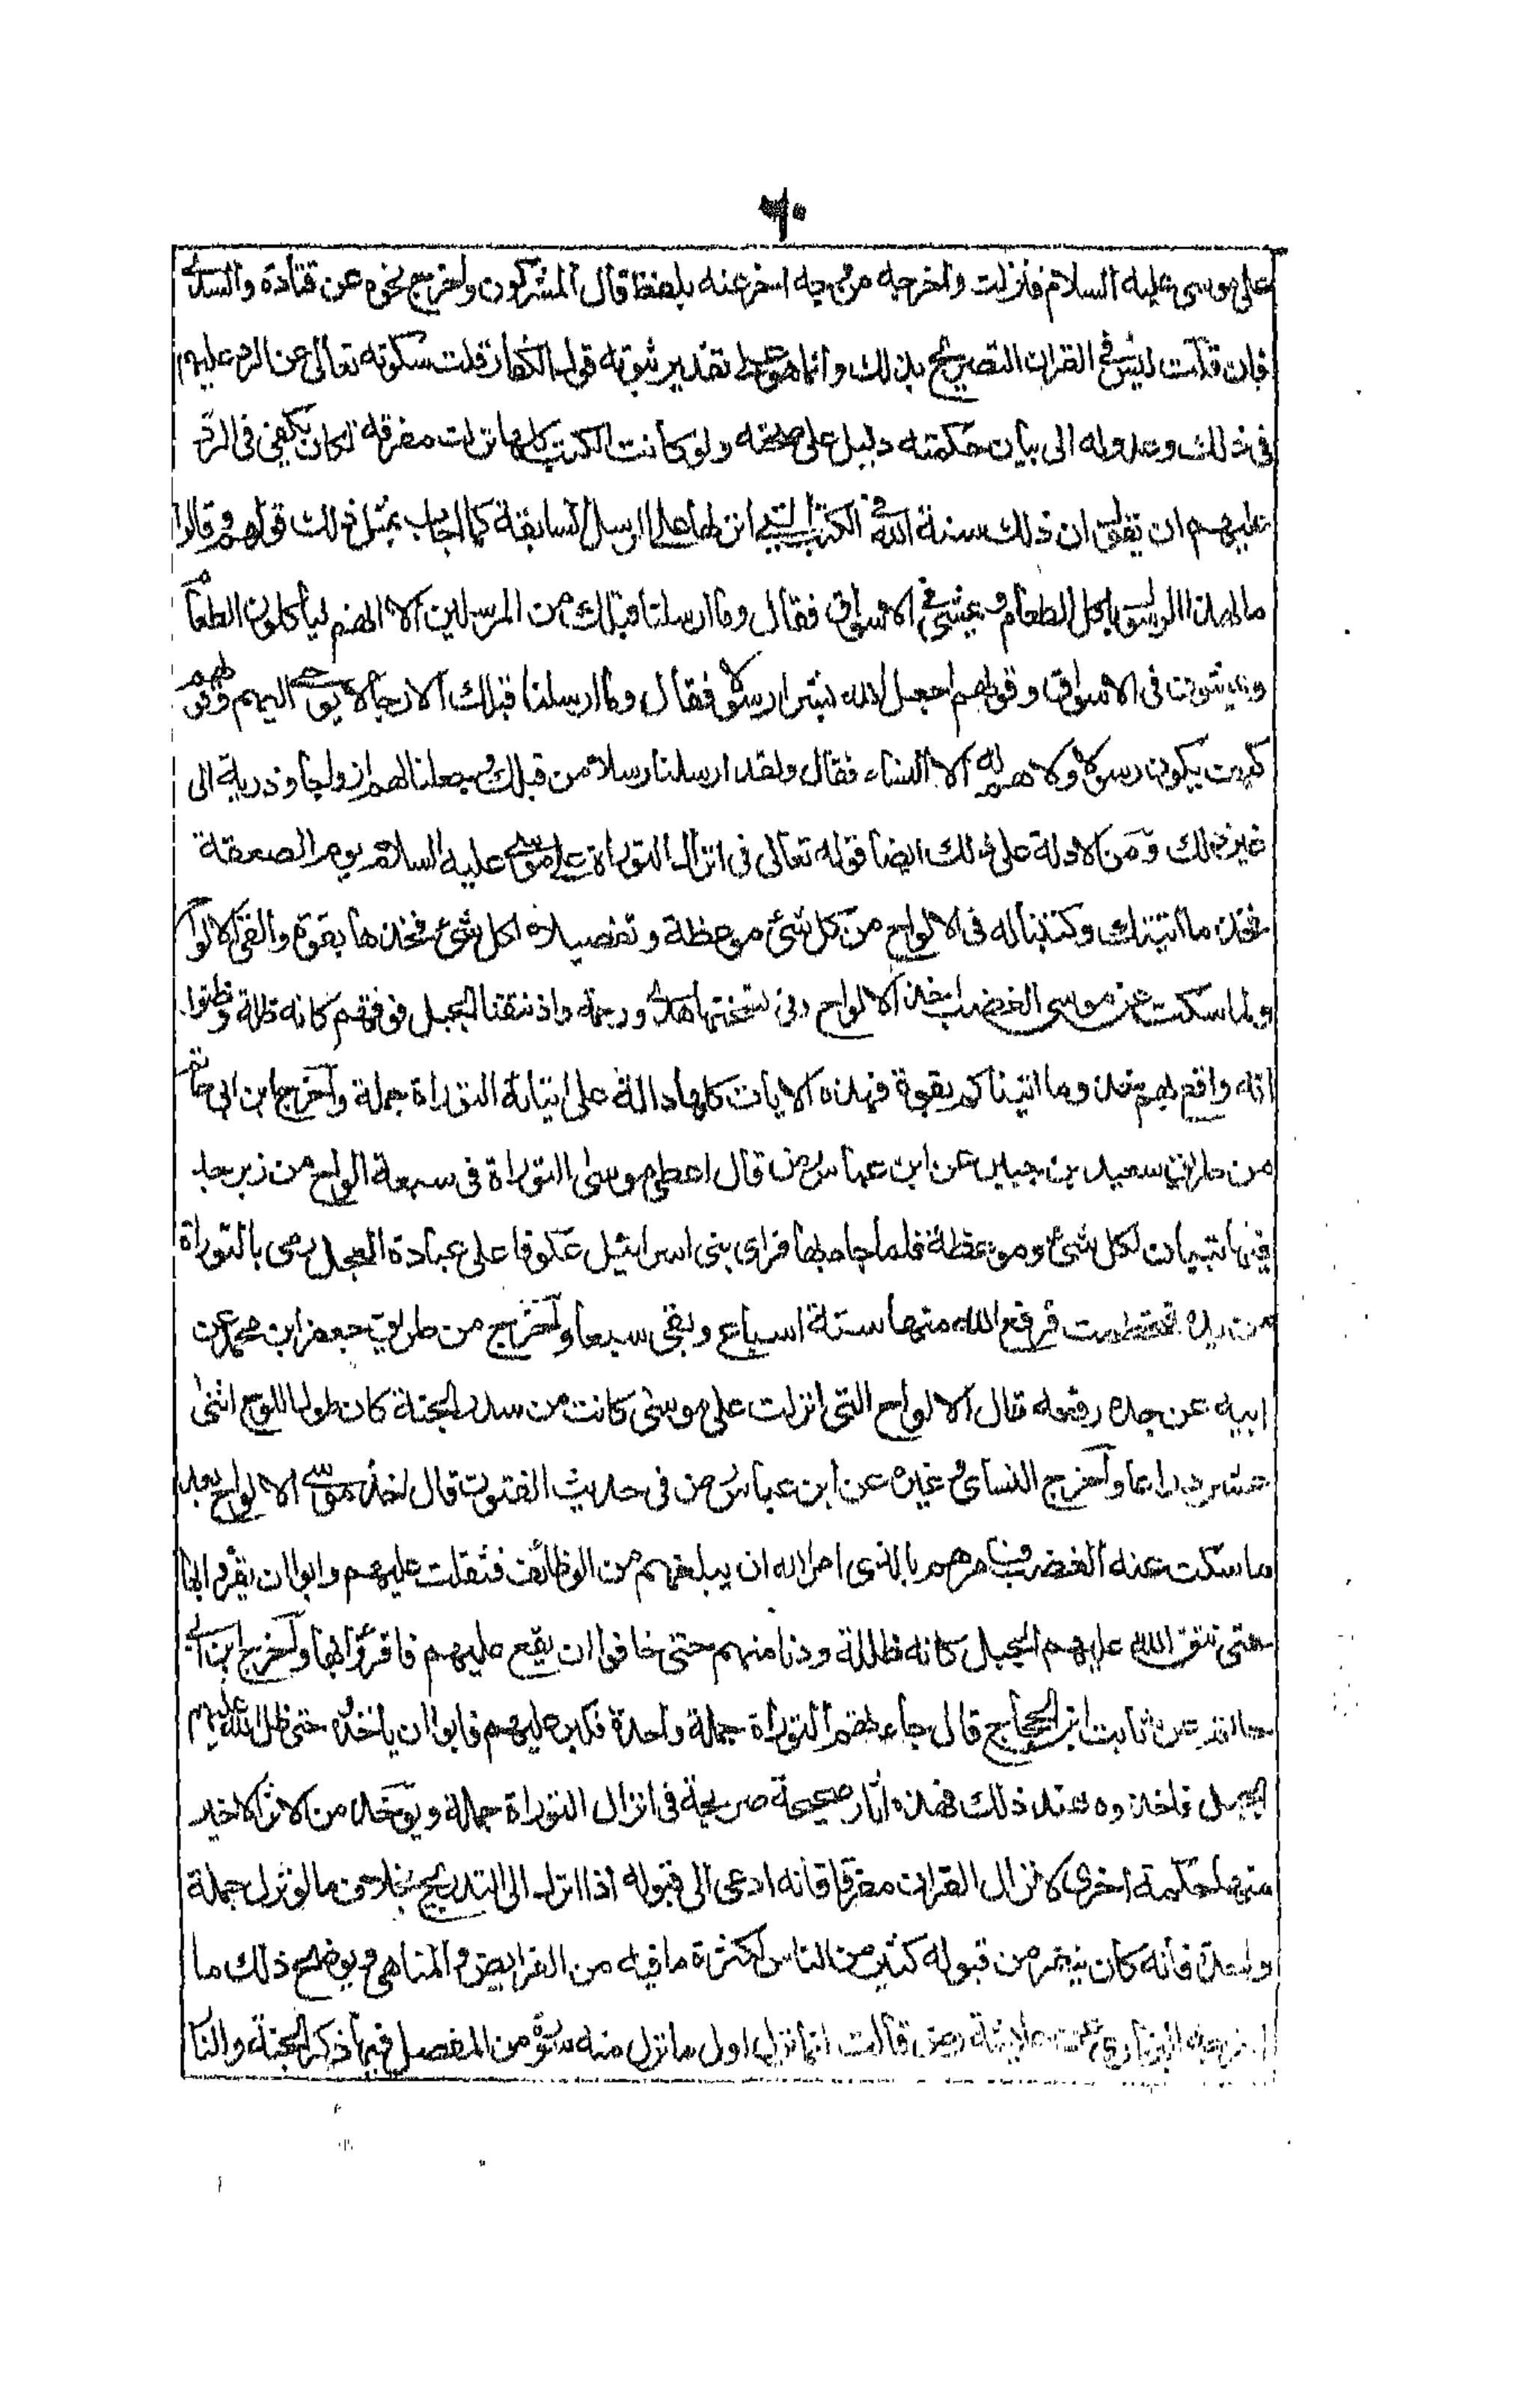 ٦٠
على موسى عليه السلام فنزلت واخرجه من وجه اخر عنه بلفظ قال المشركون واخرج نحوه عن قتادة والسدى
فان قلت ليس فى القران التصريح بذلك وانما هو على تقدير ثبوته قول الكفار قلت سكوته تعالى عن الرد عليهم
فى ذلك وعدوله الى بيان حكمته دليل على صحته ولو كانت الكتب كلها نزلت مفرقه لكان يكفى فى الرد
عليهم ان يقول ان ذلك سنة الله فى الكتب التى انزلها على الرسل السابقة كما اجاب بمثل ذلك قولهم وقالوا
ما لهذا الرسول ياكل الطعام ويمشى فى الاسواق فقال وما ارسلنا قبلك من المرسلين الا انهم لياكلون الطعام
ويمشون فى الاسواق وقولهم ابعث الله بشرا رسولا فقال وما ارسلنا قبلك الا رجالا يوحى اليهم وقولهم
كيف يكون رسولا ولا هم له الا النساء فقال ولقد ارسلنا رسلا من قبلك وجعلنا لهم ازواجا وذرية الى
غير ذلك ومن الادلة على ذلك ايضا قوله تعالى فى انزال التوراة على موسى عليه السلام يوم الصعقة
فخذ ما اتيتك وكتبنا له فى الالواح من كل شئ موعظة وتفصيلا لكل شئ فخذها بقوة والقى الالواح
ولما سكت عن موسى الغضب اخذ الالواح وفى نسختها هدى ورحمة واذ نتقنا الجبل فوقهم كانه ظلة وظنوا
انه واقع بهم خذوا ما اتيناكم بقوة فهذه الايات كلها دالة على اتيانه التوراة جملة واخرج ابن ابى حاتم
من طريق سعيد بن جبير عن ابن عباس رض قال اعطى موسى التوراة فى سبعة الواح من زبرجد
فيها تبيان لكل شئ وموعظة فلما جاء بها فراى بنى اسرائيل عكوفا على عبادة العجل رمى بالتوراة
من يده فتحطمت فرفع الله منها ستة اسباع وبقى سبعا واخرج من طريق جعفر ابن محمد عن
ابيه عن جده رفعه قال الالواح التى انزلت على موسى كانت من سدر الجنة كان طول اللوح اثنى
عشر ذراعا واخرج النسائى وغيره عن ابن عباس رض فى حديث الفتون قال اخذ موسى الالواح بعد
ما سكت عنه الغضب فامرهم بالذى امر الله ان يبلغهم من الوظائف فثقلت عليهم وابوا ان يقروا بها
حتى نتق الله عليهم الجبل كانه ظللة ودنا منهم حتى خافوا ان يقع عليهم فاقرؤا بها واخرج ابن ابى
حاتم عن ثابت ابن الحجاج قال جاءتهم التوراة جملة واحدة فكبر عليهم فابوا ان ياخذوه حتى ظلل الله عليهم
الجبل فاخذوه عند ذلك فهذه اثار صحيحة صريحة فى انزال التوراة جملة ويوخذ من الاثر الاخير
منها حكمة اخرى لانزال القران مفرقا فانه ادعى الى قبوله اذا انزل الى التدريج بخلاف ما لو نزل جملة
واحدة فانه كان ينفر من قبوله كثير من الناس لكثرة ما فيه من الفرايض والمناهى ويوضح ذلك ما
اخرجه البخارى عن عايشة رض قالت انما نزل اول ما نزل منه سورة من المفصل فيها ذكر الجنة والنار